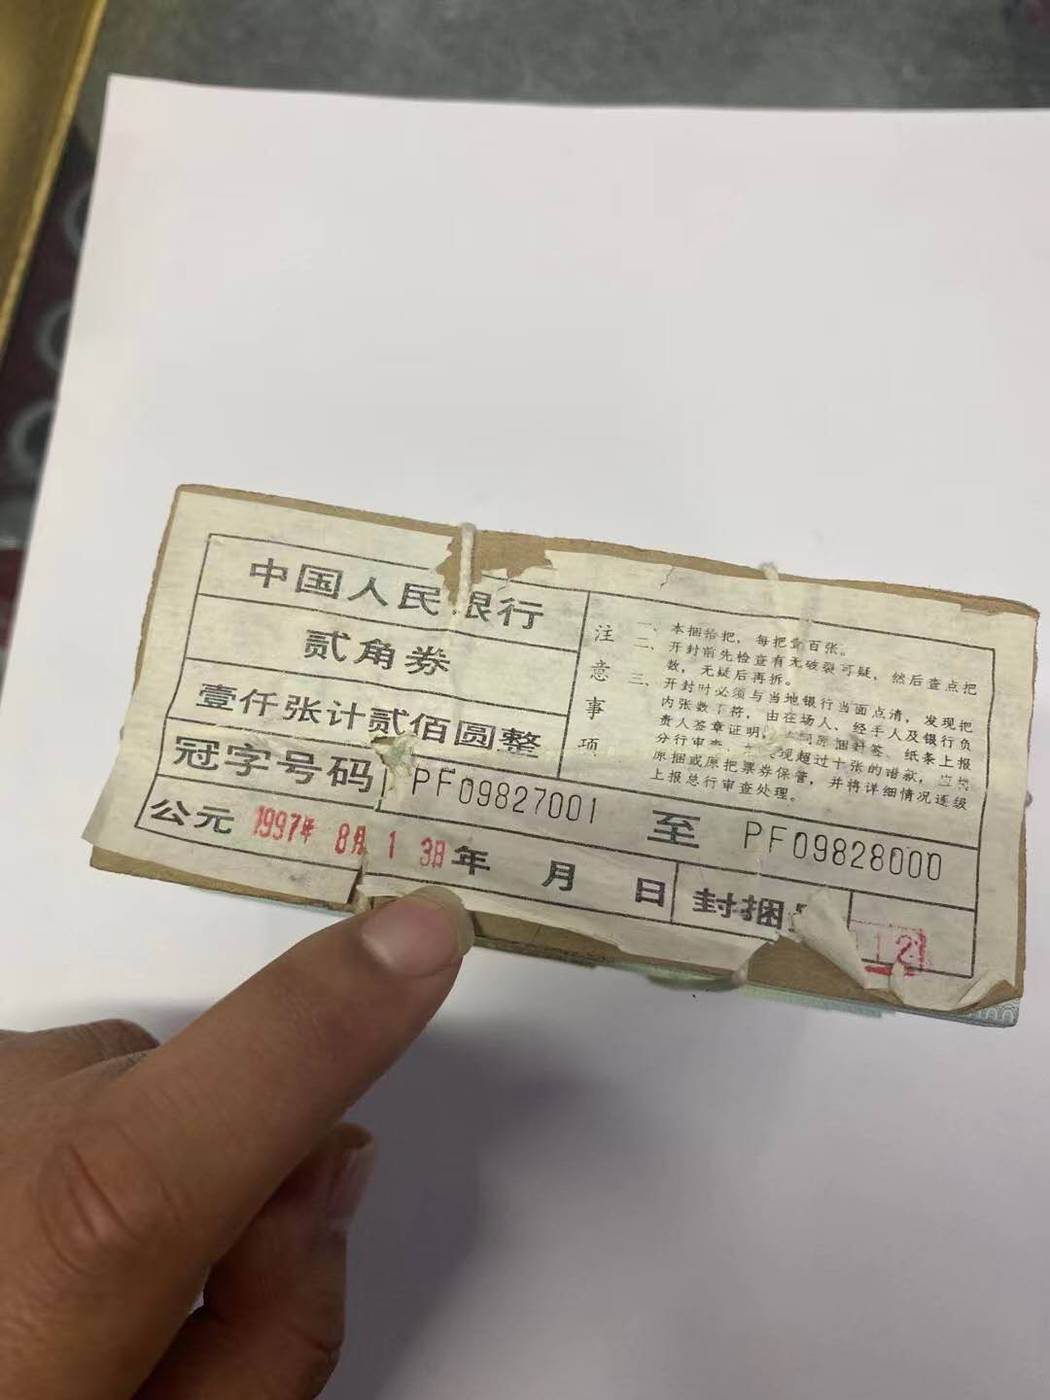 中国人民银行
贰角券
壹仟张计贰佰圆整
冠字号码 PF09827001 至 PF09828000
公元 1997年 8月 1 3日 年 月 日 封捆 12
注意事项
一、本捆拾把，每把壹百张。
二、开封前先检查有无破裂可疑，然后查点把
数，无疑后再拆。
三、开封时必须与当地银行当面点清，发现把
内张数不符，由在场人、经手人及银行负
责人签章证明，同原捆封签、纸条上报
分行审查，发现超过十张的错款，应将
原捆或原把票券保管，并将详细情况逐级
上报总行审查处理。